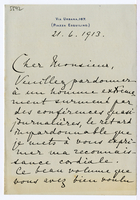 Via Gregoriana
21.6.1913.
Cher Monsieur,
Veuillez pardonner
à un homme extrême
ment surmené par
des conférences quasi
journalières, le retard
impardonnable que
je mets à vous expri
mer ma reconnais
sance cordiale.
Le beau volume que
vous avez bien voulu